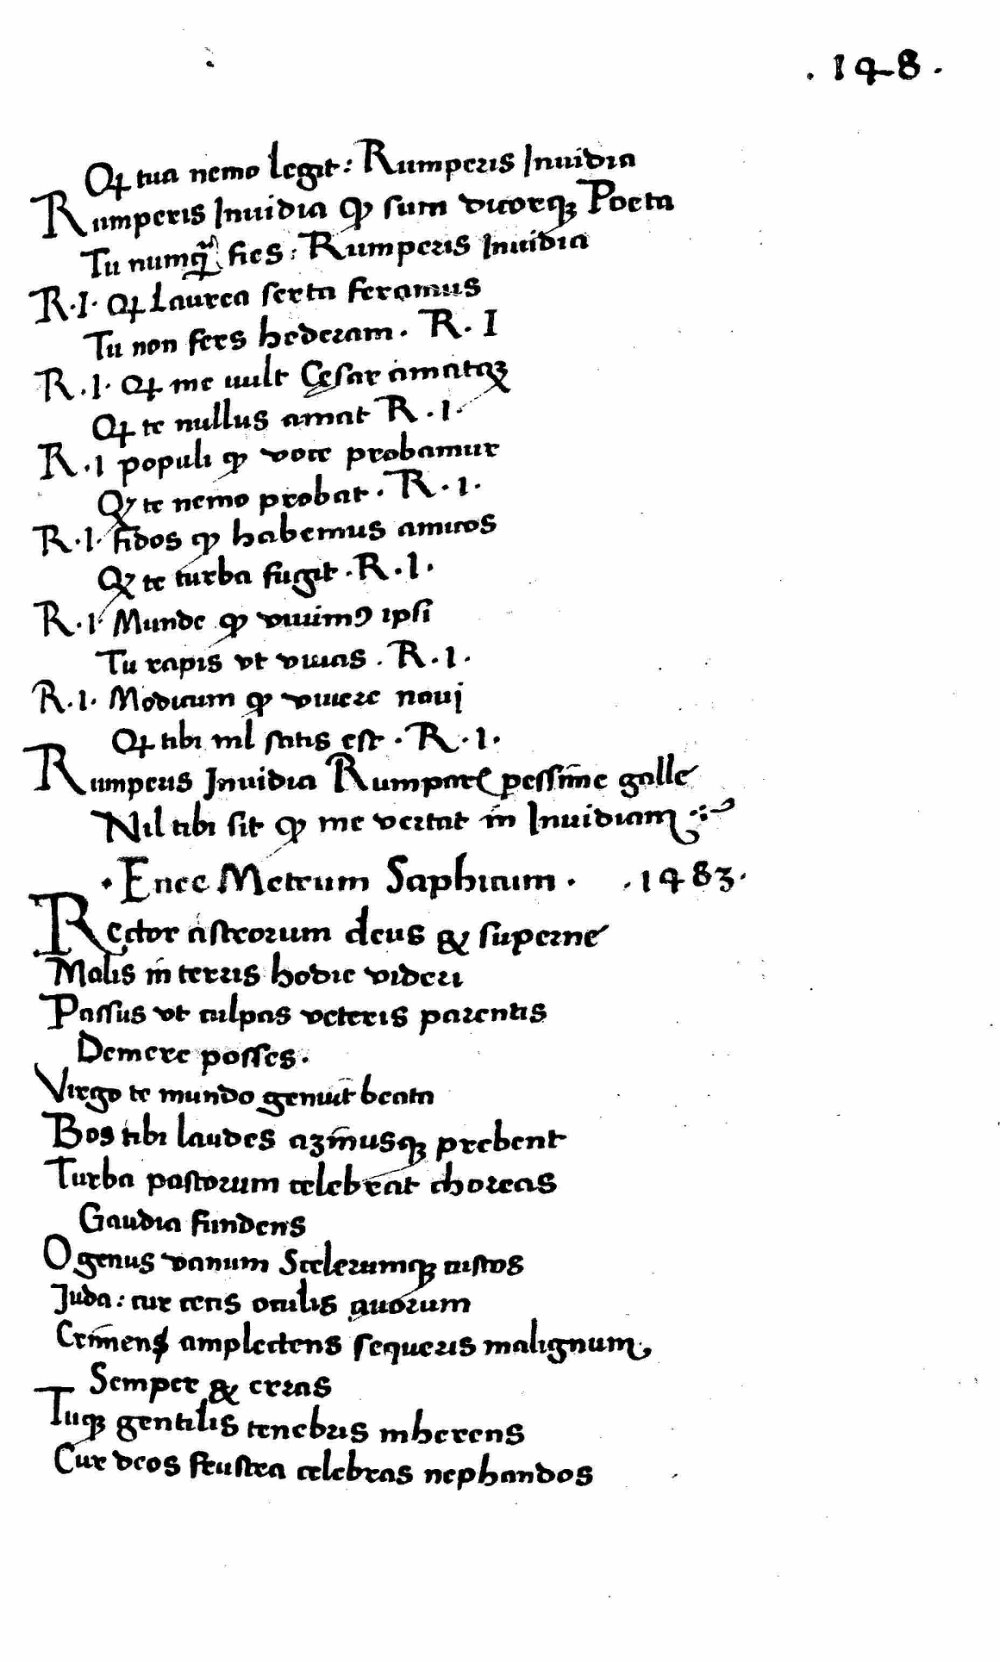 .148.
Qd tua nemo legit: Rumperis Inuidia
Rumperis Inuidia qd sum dicorqꝫ Poeta
Tu numqᷓ fies: Rumperis Inuidia
R.I. Qd Laurea serta feramus
Tu non fers hederam. R. I
R.I. Qd me uult Cęsar amatqꝫ
Qd te nullus amat R.I.
R.I populi qd voce probamur
Qd te nemo probat. R.I.
R.I. fidos qd habemus amicos
Qd te turba fugit. R.I.
R.I. Munde qd viuimꝰ ipsi
Tu rapis vt viuas. R.I.
R.I. Modicum qd viuere nouj
Qd tibi nil satis est. R.I.
Rumperis Inuidia Rumpar& pessime galle
Nil tibi sit qd me vertat in Inuidiam
. Enee Metrum Saphicum. .1483.
Ręctor astrorum deus & superne
Malis in terris hodie videri
Passus vt culpas veteris parentis
Demere posses.
Virgo te mundo genuit beata
Bos tibi laudes azinusqꝫ prebent
Turba pastorum celebrat choreas
Gaudia fundens
O genus vanum Scelerumqꝫ custos
Juda: cur cecis oculis auorum
Crimens amplectens sequeris malignum,
Semper & erras
Tuqꝫ gentilis tenebris inherens
Cur deos frustra celebras nephandos